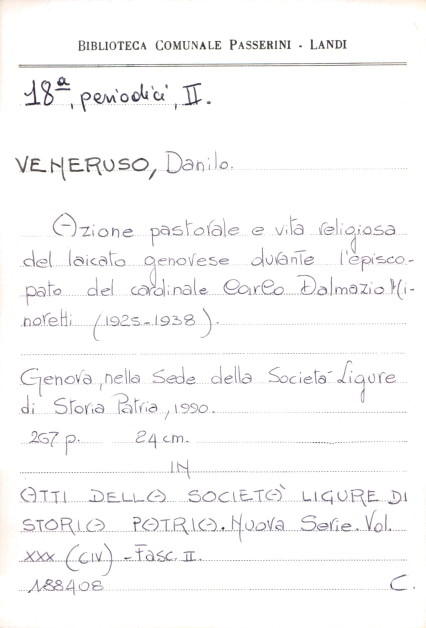 BIBLIOTECA COMUNALE PASSERINI - LANDI
18ª, periodici, II.
VENERUSO, Danilo.
Azione pastorale e vita religiosa
del laicato genovese durante l'episco-
pato del cardinale Carlo Dalmazio Mi-
noretti (1925-1938).
Genova, nella Sede della Società Ligure
di Storia Patria, 1990.
267 p. 24 cm.
IN
ATTI DELLA SOCIETA' LIGURE DI
STORIA PATRIA. Nuova Serie. Vol.
XXX (CIV) - Fasc. II.
188408 C.